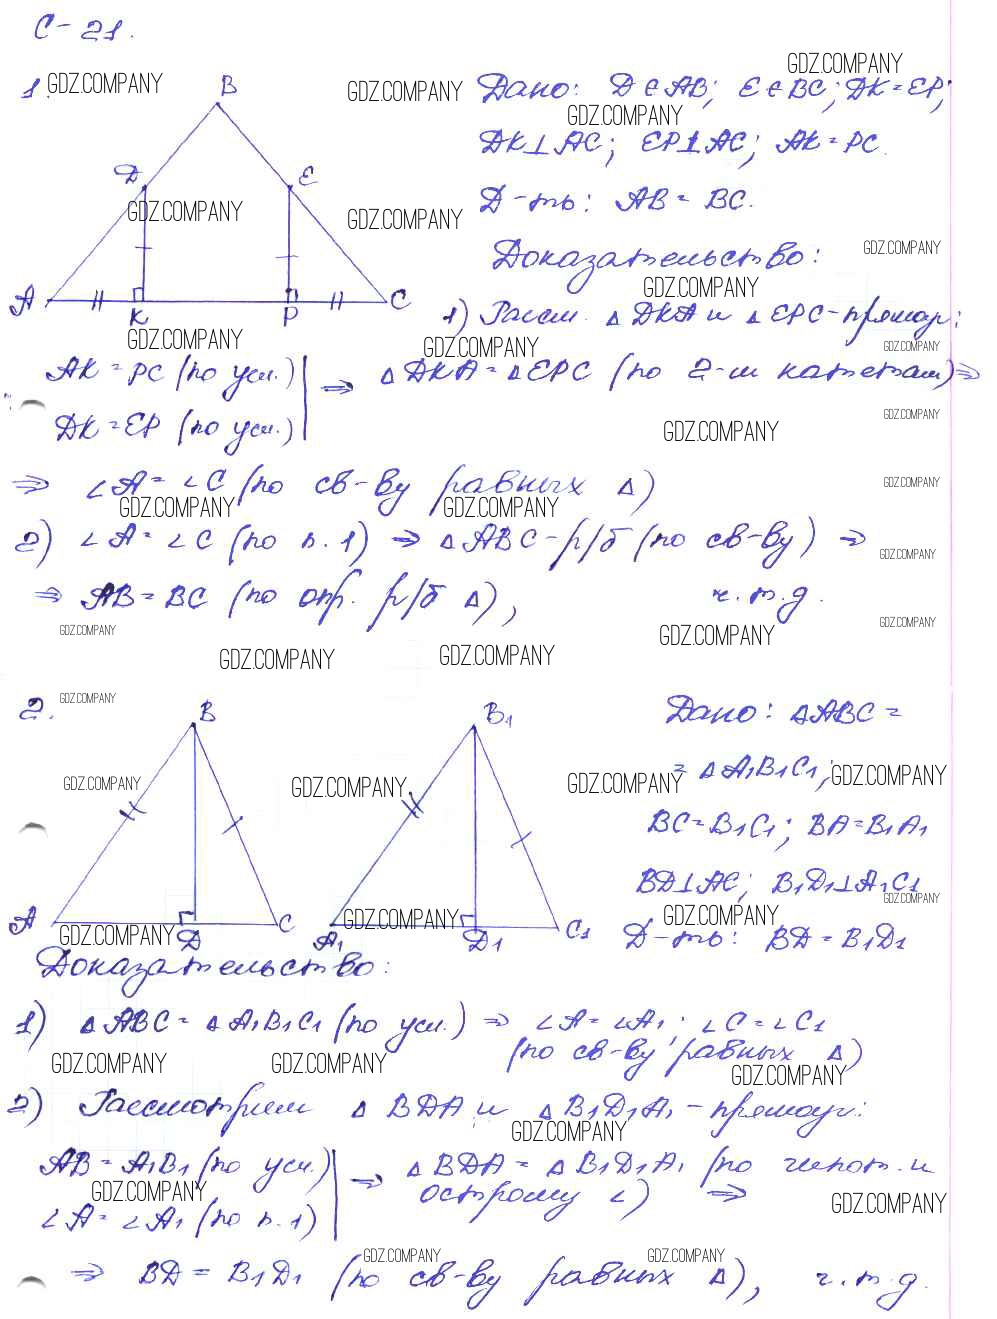 С-21.
1.
B
D
E
A
K
P
C
Дано: D∈AB; E∈BC; DK=EP;
DK⊥AC; EP⊥AC; AK=PC.
Д-ть: AB=BC.
Доказательство:
1) Рассм. △DKA и △EPC-прямоуг:
AK=PC (по усл.)
DK=EP (по усл.)
⇒ △DKA=△EPC (по 2-м катетам)⇒
⇒ ∠A=∠C (по св-ву равных △)
2) ∠A=∠C (по п.1) ⇒ △ABC-р/б (по св-ву) ⇒
⇒ AB=BC (по опр. р/б △), ч.т.д.
2.
B
A
D
C
B₁
A₁
D₁
C₁
Дано: △ABC=
=△A₁B₁C₁;
BC=B₁C₁; BA=B₁A₁
BD⊥AC; B₁D₁⊥A₁C₁
Д-ть: BD=B₁D₁
Доказательство:
1) △ABC=△A₁B₁C₁ (по усл.) ⇒ ∠A=∠A₁; ∠C=∠C₁
(по св-ву равных △)
2) Рассмотрим △BDA и △B₁D₁A₁-прямоуг:
AB=A₁B₁ (по усл.)
∠A=∠A₁ (по п.1)
⇒ △BDA=△B₁D₁A₁ (по гипот. и
острому ∠) ⇒
⇒ BD=B₁D₁ (по св-ву равных △), ч.т.д.
GDZ.COMPANY